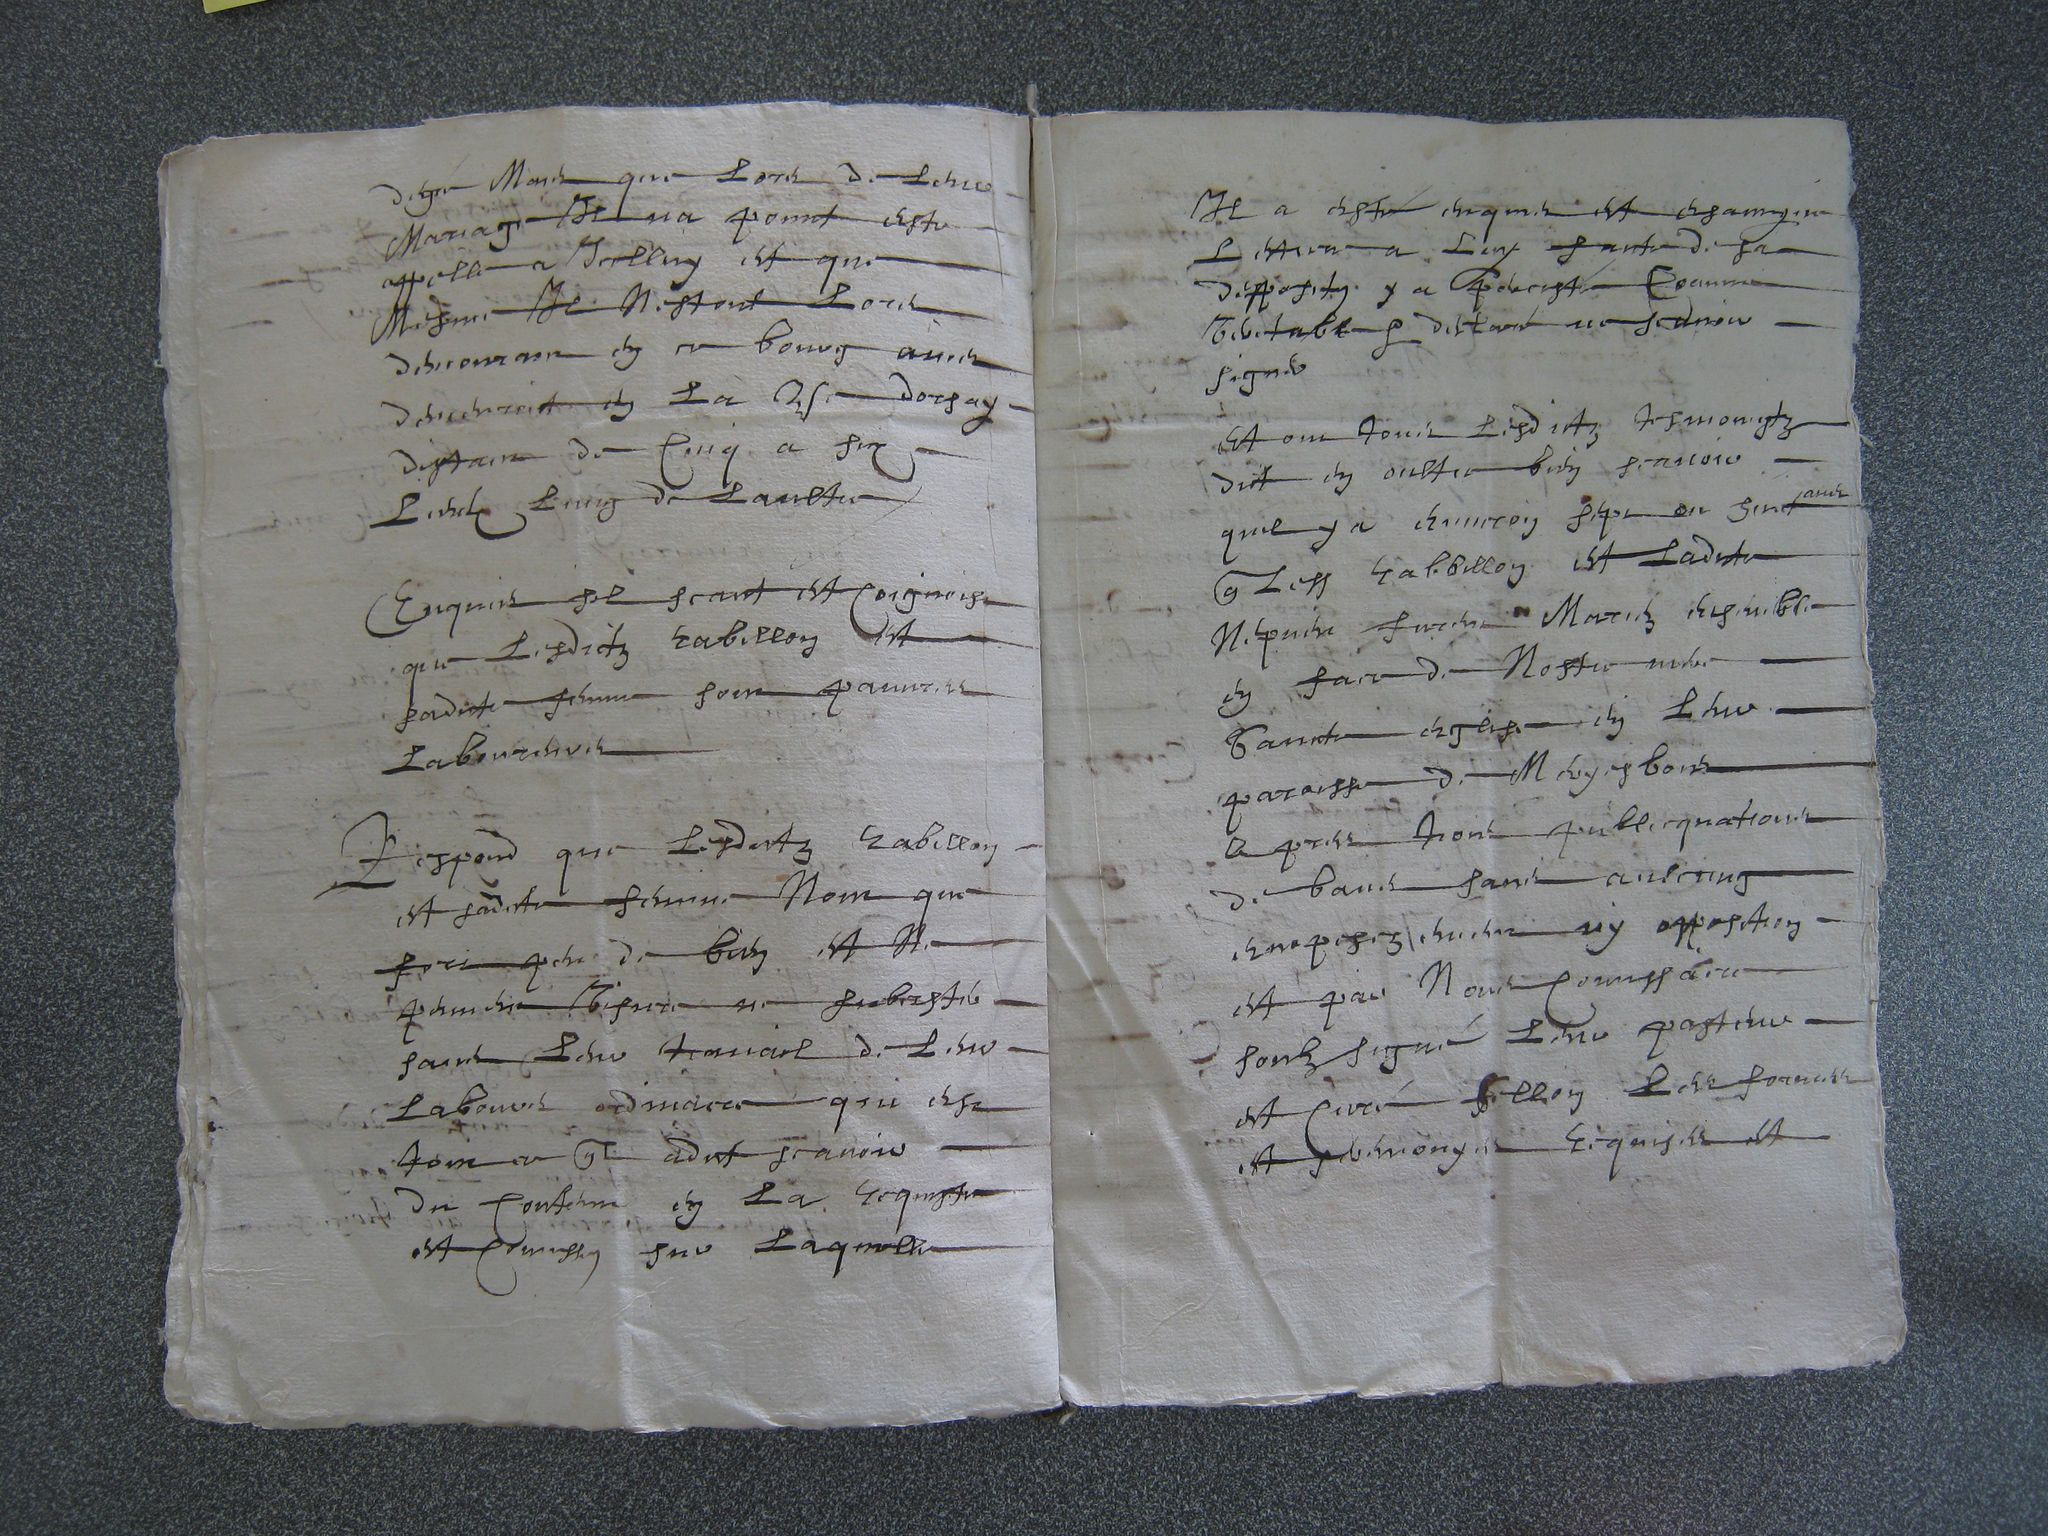 degré Mais que Lors de Leur
Mariage Il na point esté
appellé a Icelluy et que
Mesme Il Nestoit Lors
demourant en ce bourg ains
demeuroit en La dorsay
distant de Cinq a six
Lieues Loing de Laultre
Enquis sil scait et Coignoist
que Lesdictz Rabillon et
sadicte femme sont pauvres
Laboureurs
Respond que Lesdictz Rabillon
et sadicte femme Nont que
fort peu de bien et Ne
peuvent vivre ne subcister
sans Leur travail de Leur
Labeur ordinaire qui est
tout ce quil a dict scavoir
du Contenu en La Requeste
et Commission sur Laquelle
Il a esté enquis et examyné
Lecture a Luy faicte de sa
depposition y a percisté Comme
veritable et declaré ne scavoir
signer
Et ont tous Lesdictz tesmoingtz
dict en oultre bien scavoir
quil y a environ sept ou huict ans
que Lesd Rabbillon et Ladicte
furent Mariez ensemble
en face de Nostre mere
Saincte eglise en Leur
paroisse de
Apres trois publicquations
de bans sans aulcung
empeschement ny opposition
et par Nous Commissaire
soubz signé Leur pasteur
et Curé sellon Les formes
et seremonyes Requises et